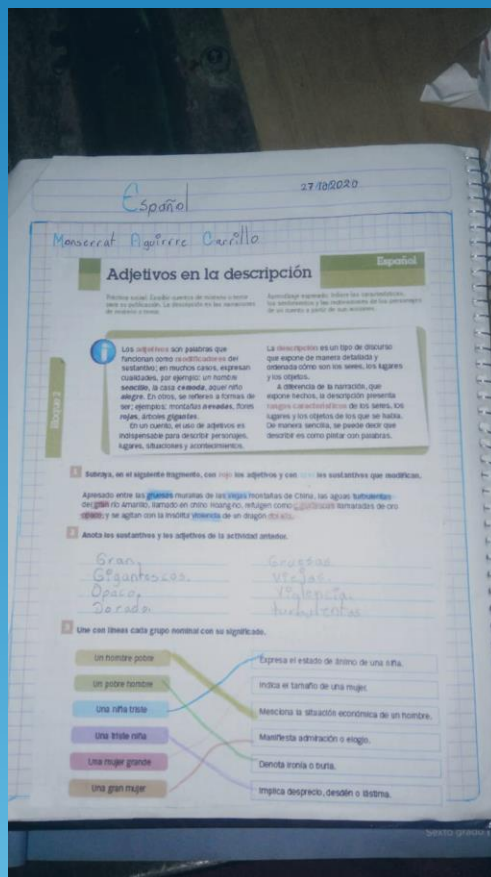 27/10/2020
Español
Monserrat Aguirre Carrillo
Español
Adjetivos en la descripción
Bloque 2
Los adjetivos son palabras que
funcionan como modificadores del
sustantivo; en muchos casos, expresan
cualidades, por ejemplo: un hombre
sencillo, la casa cómoda, aquel niño
alegre. En otros, se refieren a formas de
ser; ejemplos: montañas nevadas, flores
rojas, árboles gigantes.
En un cuento, el uso de adjetivos es
indispensable para describir personajes,
lugares, situaciones y acontecimientos.
La descripción es un tipo de discurso
que expone de manera detallada y
ordenada cómo son los seres, los lugares
y los objetos.
A diferencia de la narración, que
expone hechos, la descripción presenta
rasgos característicos de los seres, los
lugares y los objetos de los que se habla.
De manera sencilla, se puede decir que
describir es como pintar con palabras.
1 Subraya, en el siguiente fragmento, con rojo los adjetivos y con los sustantivos que modifican.
Apresado entre las gruesas murallas de las viejas montañas de China, las aguas turbulentas
del gran río Amarillo, llamado en chino Hoang-ho, refulgen como gigantescas llamaradas de oro
opaco, y se agitan con la insólita violencia de un dragón dorado.
2 Anota los sustantivos y los adjetivos de la actividad anterior.
Gran, Gruesas
Gigantescas. viejas.
Opaco,
Dorado. turbulentas
3 Une con líneas cada grupo nominal con su significado.
Un hombre pobre
Un pobre hombre
Una niña triste
Una triste niña
Una mujer grande
Una gran mujer
Expresa el estado de ánimo de una niña.
Indica el tamaño de una mujer.
Menciona la situación económica de un hombre.
Manifiesta admiración o elogio.
Denota ironía o burla.
Implica desprecio, desdén o lástima.
Sexto grado